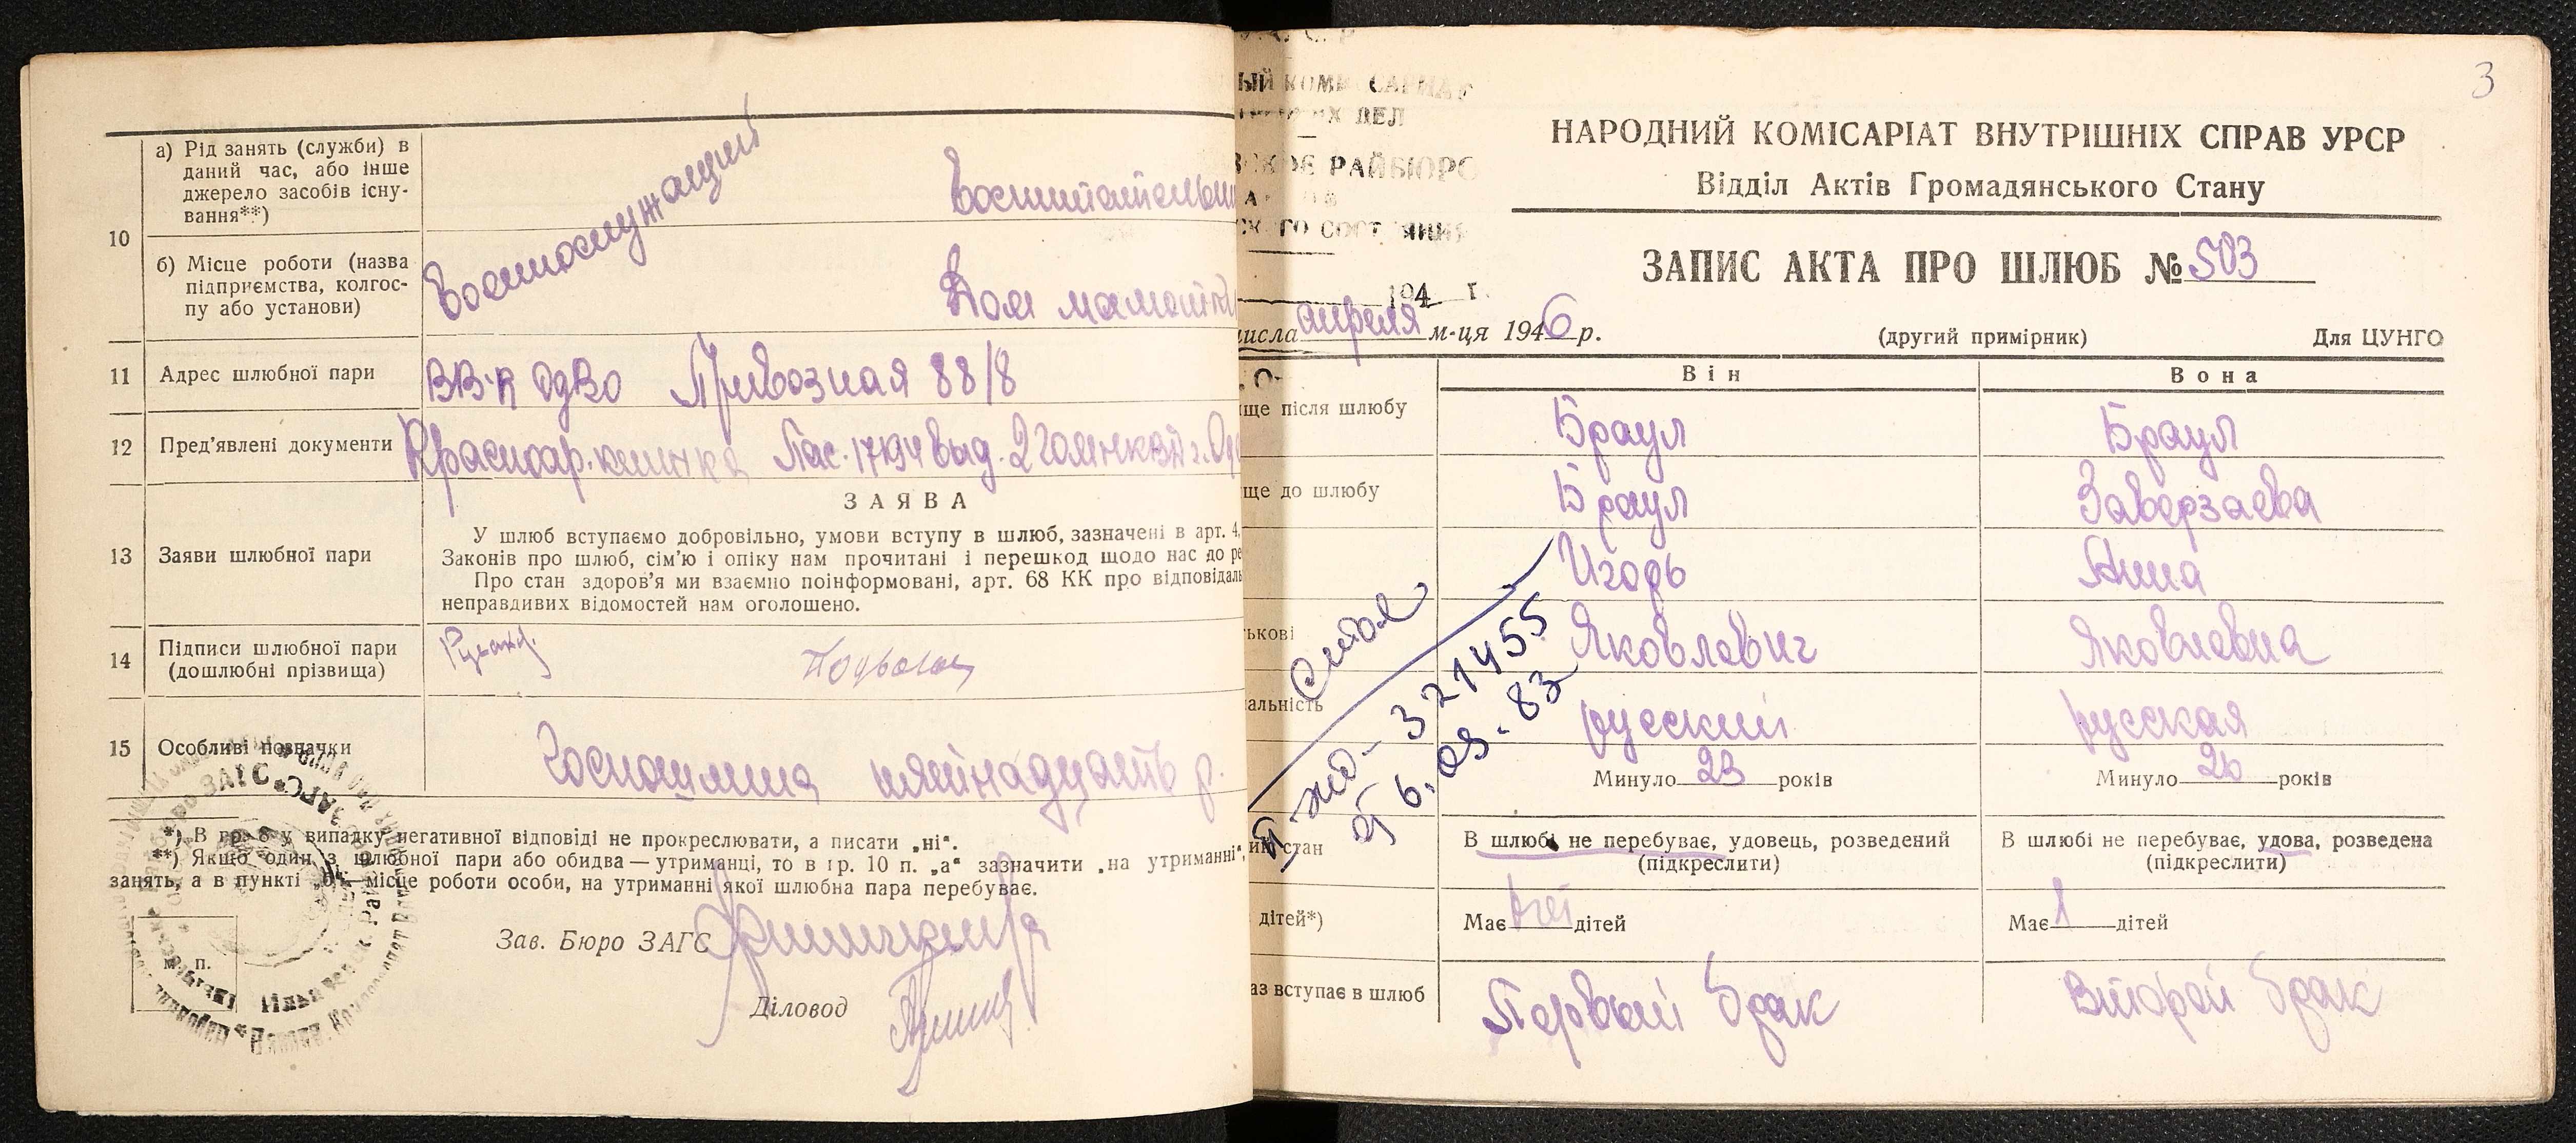 10
а) Рід занять (служби) в
даний час, або інше
джерело засобів існу-
вання**)
Военнослужащий
б) Місце роботи (назва
підприємства, колгос-
пу або установи)
Дом
11 Адрес шлюбної пари
Привозная 88/8
12 Пред’явлені документи
13 Заяви шлюбної пари
ЗАЯВА
У шлюб вступаємо добровільно, умови вступу в шлюб, зазначені в арт. 4,
Законів про шлюб, сім’ю і опіку нам прочитані і перешкод щодо нас до ре
Про стан здоров’я ми взаємно поінформовані, арт. 68 КК про відповідаль
неправдивих відомостей нам оголошено.
14 Підписи шлюбної пари
(дошлюбні прізвища)
15 Особливі позначки
Госпошлина пятнадцать р.
*) В гр. 8 у випадку негативної відповіді не прокреслювати, а писати „ні“.
**) Якщо один з шлюбної пари або обидва — утриманці, то в гр. 10 п. „а“ зазначити „на утриманні“,
занять, а в пункті „б“ — місце роботи особи, на утриманні якої шлюбна пара перебуває.
Зав. Бюро ЗАГС
м. п.
Діловод
3
РАЙБЮРО
194 г.
НАРОДНИЙ КОМІСАРІАТ ВНУТРІШНІХ СПРАВ УРСР
Відділ Актів Громадянського Стану
ЗАПИС АКТА ПРО ШЛЮБ № 503
числа апреля м-ця 1946 р.
(другий примірник)
Для ЦУНГО
Він Вона
ще після шлюбу Браул Браул
ще до шлюбу Браул Заверзаева
Игорь Анна
ькові Яковлевич Яковлевна
альність русский русская
Минуло 23 років Минуло 26 років
321455
6.09.83
ий стан
В шлюбі не перебуває, удовець, розведений
(підкреслити)
В шлюбі не перебуває, удова, розведена
(підкреслити)
дітей*) Має нет дітей Має 1 дітей
аз вступає в шлюб Первый брак Второй брак